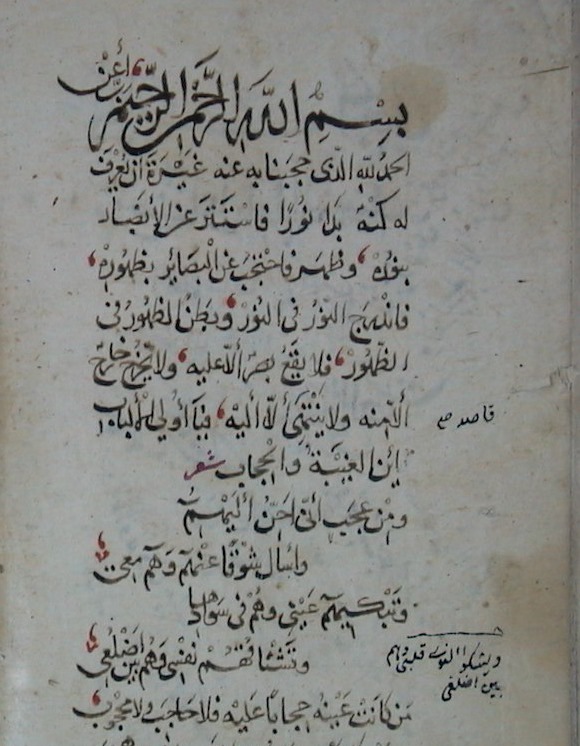 بِسْمِ اللهِ الرَّحْمٰنِ الرَّحِيْمِ رَبِّ أَعِنْ
الحمدُ للهِ الّذى حجبنا به عنه غَيْرَةً أن يُعْرَفَ
له كُنْهٌ بدا نُورًا فاسْتَتَرَ عن الأبْصَار
بنورهْ وظهر فاحتجبَ عن الْبصَائِرِ بظهورِهْ
فاندرج النّورُ فى النورْ وبطَن الظهُورُ فى
الظّهُورْ فلا يقعُ بصرٌ ألّا عليه ولا يخْرُج خارجٌ
ألّا منه ولا ينْتَهى ألّا أليهْ فيَا أولى الألباب
أيْن الغَيْبَةُ والْحِجاب شعر
ومِنْ عجَبٍ أنّى احِنُّ أليْهِمُ
وأسأل شوْقًا عنْهُمُ وَهُمُ معى
وتَبْكيهِمُ عَيْنى وهُمْ فى سوَادِهَا
وتَشْتاقُهُمْ نفْسِى وَهُم بين اضْلُعى
مَن كانَتْ عَيْنُه حِجابًا عَلَيْه فلا حَاجبَ ولا محجُوب
قاصد صح
ويشكو النوى قلبى وهم
بين اضلعى